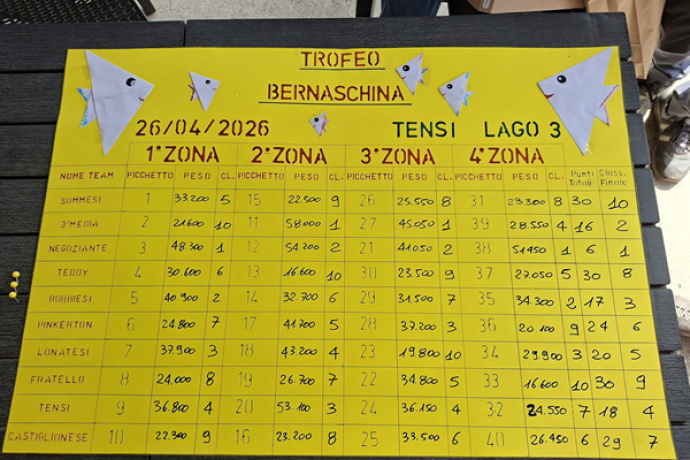 TROFEO
BERNASCHINA
26/04/2026 TENSI LAGO 3
1ª ZONA 2ª ZONA 3ª ZONA 4ª ZONA
NOME TEAM PICCHETTO PESO CL. PICCHETTO PESO CL. PICCHETTO PESO CL. PICCHETTO PESO CL. Punti Totali Class. Finale
SOMMESI 1 33.200 5 15 22.500 9 26 25.550 8 31 23.300 8 30 10
3ª MEDIA 2 21600 10 11 58.000 1 27 45.050 1 39 28.550 4 16 2
NEGOZIANTE 3 48.300 1 12 54.200 2 21 41.050 2 38 51450 1 6 1
TEDDY 4 30.600 6 13 16.600 10 30 23.500 9 37 27.050 5 30 8
BOBBIESI 5 40.900 2 14 32.700 6 29 31.500 7 35 34.300 2 17 3
PINKERTON 6 24.800 7 17 41.700 5 28 37.200 3 36 20.100 9 24 6
LONATESI 7 37.900 3 18 43.200 4 23 19.800 10 34 29.900 3 20 5
FRATELLO 8 24.000 8 19 26.700 7 22 34.800 5 33 16.600 10 30 9
TENSI 9 36.800 4 20 53.100 3 24 36.150 4 32 24.550 7 18 4
CASTIGLIONESE 10 22.300 9 16 23.200 8 25 33.500 6 40 26.450 6 29 7